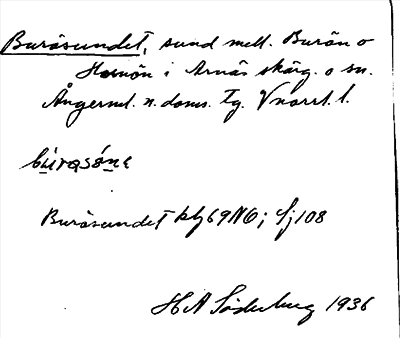 Buråsundet, sund mell. Burön o
Hornön i Arnäs skärg. o sn.
Ångerml. n. doms. tg. Vnorrl. l.
bùrasónɛ
Buråsundet kbl 69 NO; Sj 108
H A Söderberg 1936